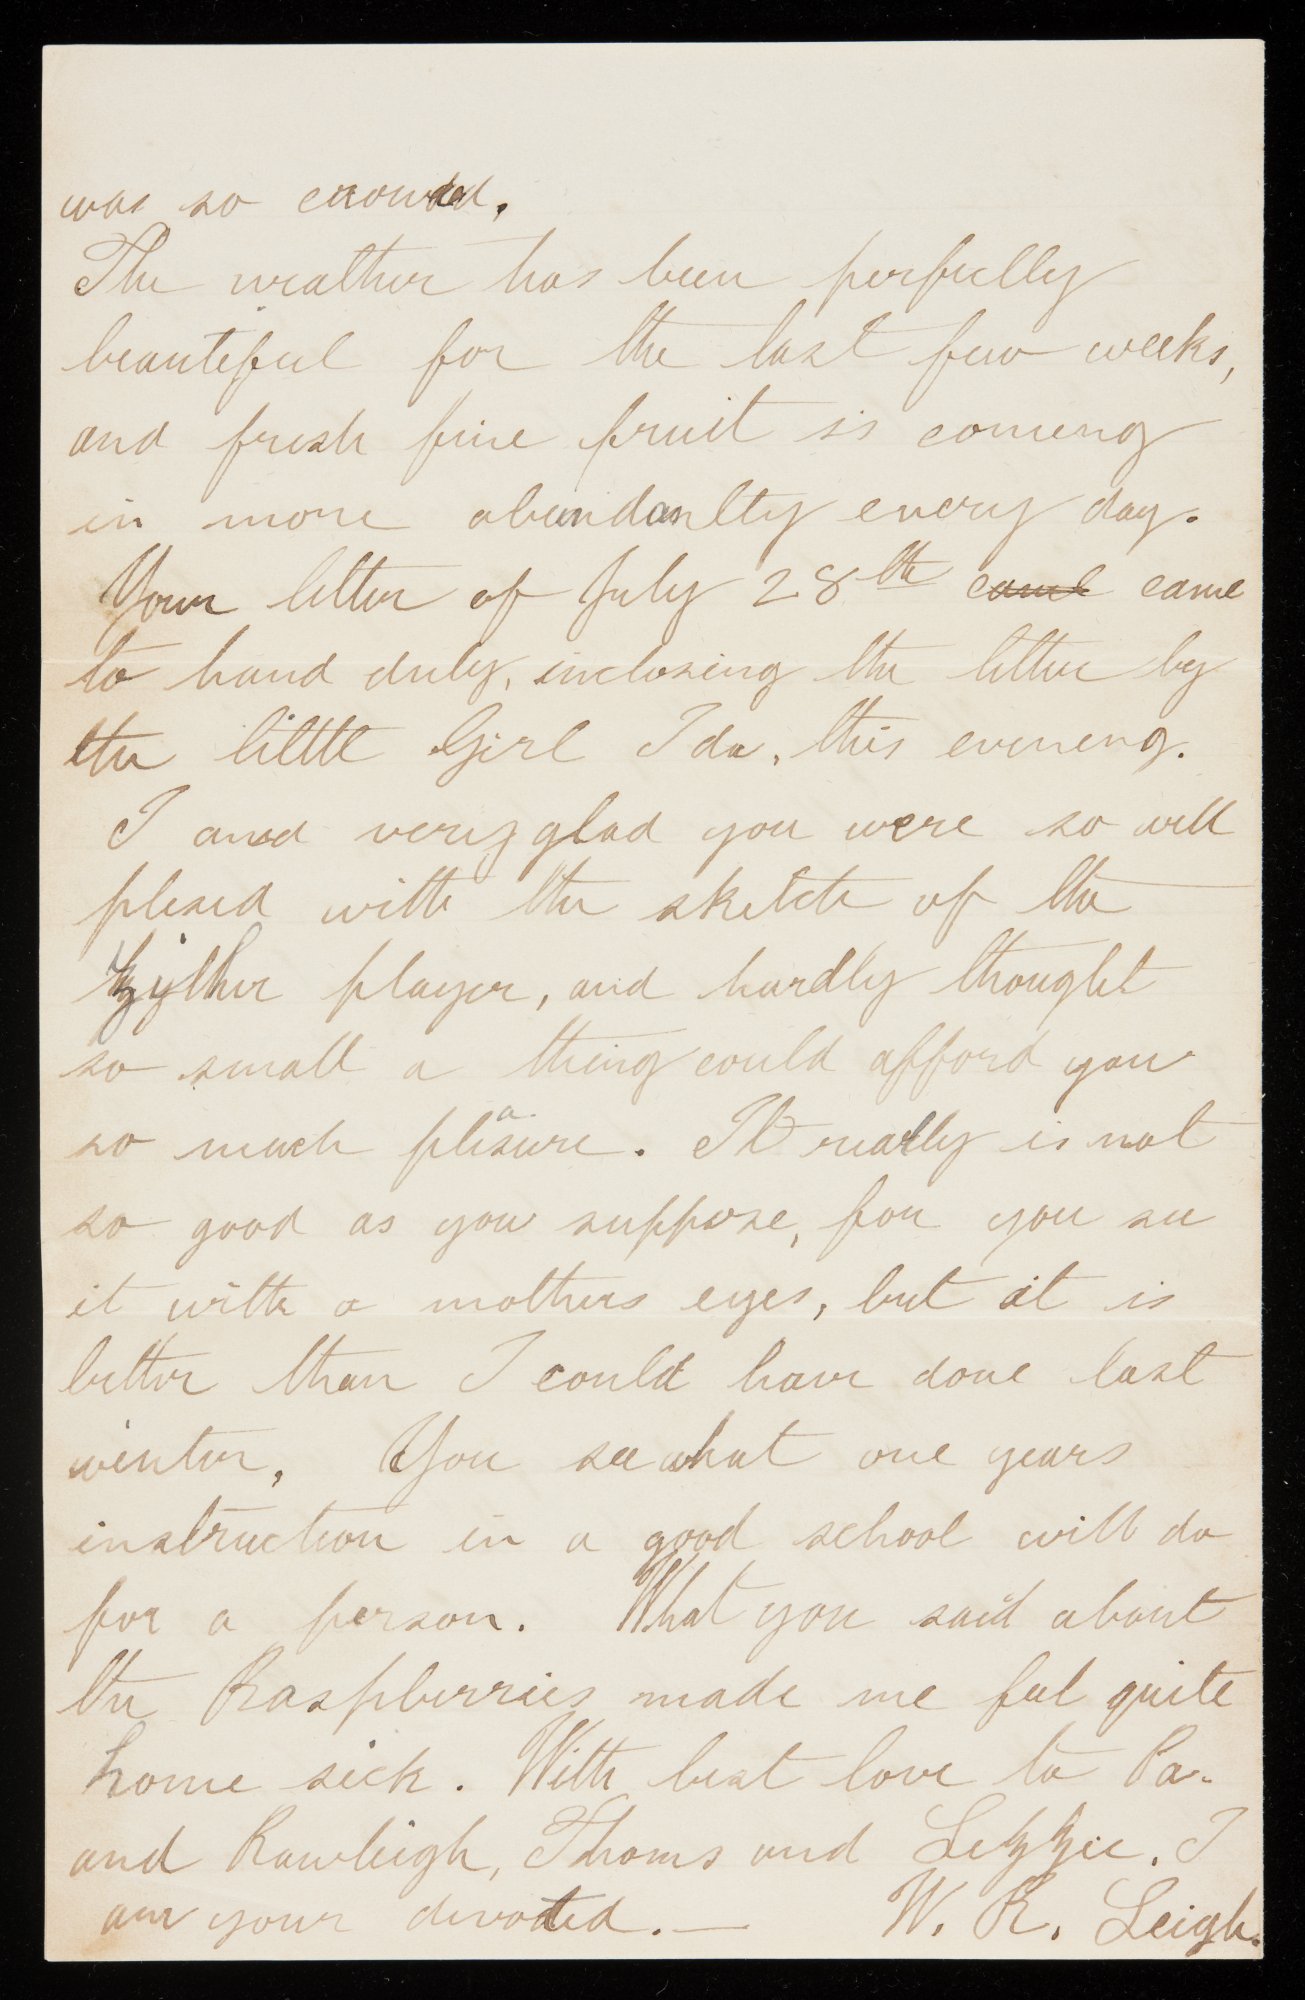 was so crowded.
The weather has been perfectly
beautiful for the last few weeks,
and fresh fine fruit is coming
in more abundanltly every day.
Your letter of July 28th came came
to hand duly, inclosing the letter by
the little Girl Ida, this evening.
I am very glad you were so well
plesed with the sketch of the
zyther player, and hardly thought
so small a thing could afford you
so much pleasure. It really is not
so good as you suppose, for you see
it with a mothers eyes, but it is
better than I could have done last
winter. You see what one years
instruction in a good school will do
for a person. What you said about
the Raspberries made me feel quite
home sick. With best love to Pa.
and Rawleigh, Thoms and Lizzie. I
am your devoted. — W. R. Leigh.